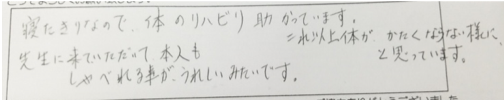 寝たきりなので、体のリハビリ助かっています。
これ以上体が、かたくならない様に、
と思っています。
先生に来ていただいて本人も
しゃべれる事が、うれしいみたいです。